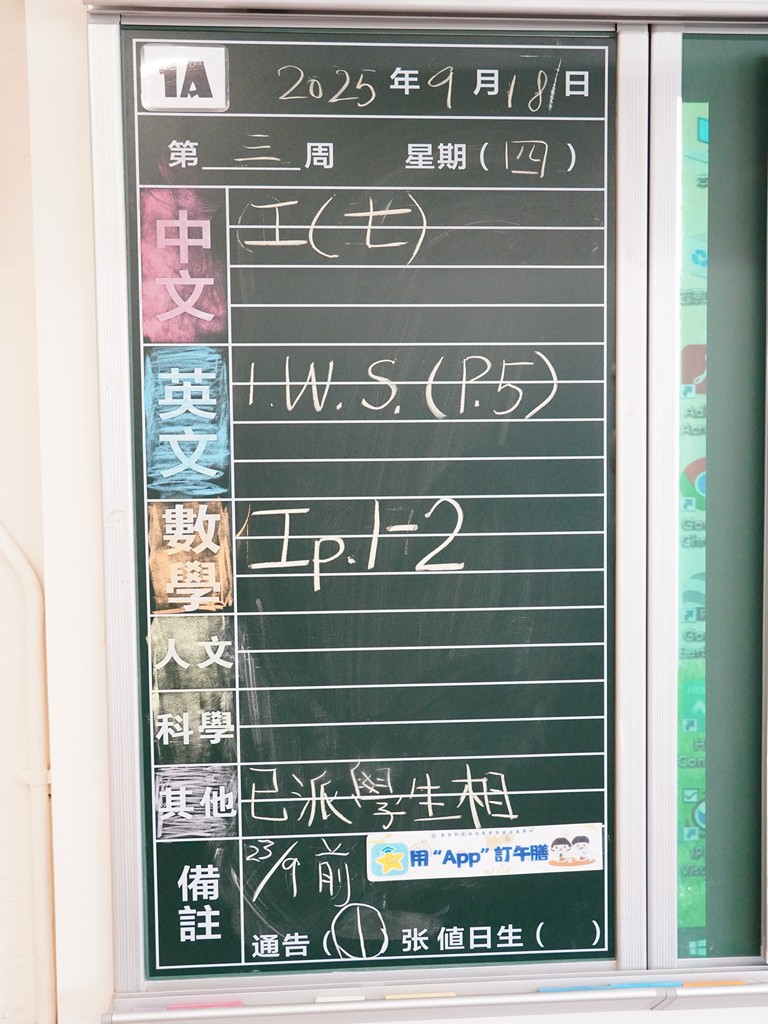 1A 2025年9月18日
第三周 星期(四)
中文 工(七)
英文 1.W.S.(P.5)
數學 工p.1-2
人文
科學
其他 已派學生相
備註 23/9前
用“App”訂午膳
通告(1)张 值日生( )